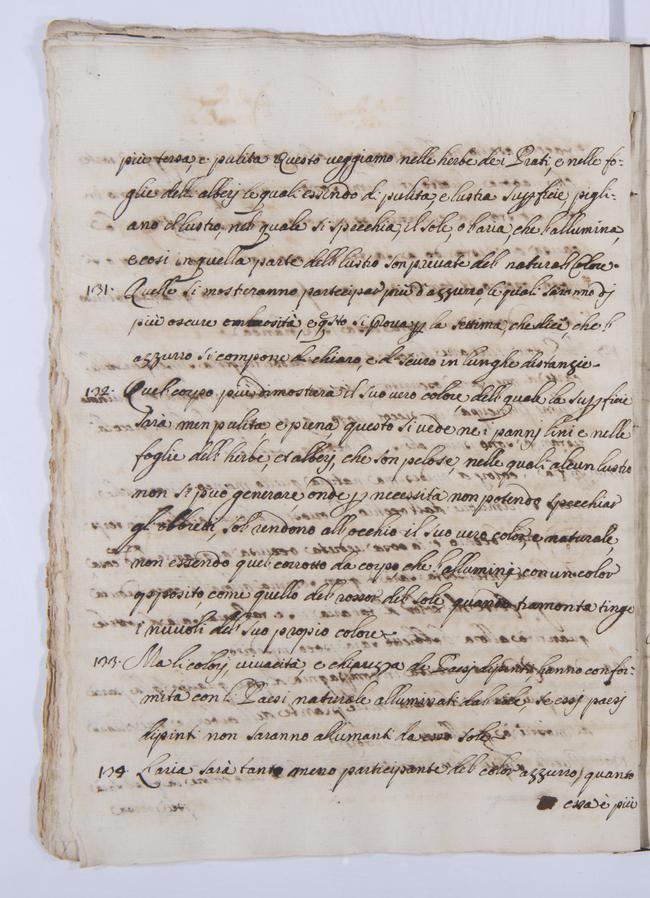 più tersa, e pulita Questo veggiamo nelle herbe dei Prati, e nelle fo-
glie dell alberj le quali essendo di pulita e lustra supficie, pigli-
ano il lustro, nel quale si specchia, il sole, o l'aria, che l'allumina,
e così in quella parte dell lustro son private del natural Colore.
131. Quelle si mosteranno partecipar più d'azzurro, le quali saranno di
più oscure ombrosità, e qsto si prova p la settima, che dice, che l
azzurro si compone di chiaro, e di scuro in lunghe distanzie.
132. Quel corpo più dimosterà il suo vero colore, dell quale la supficie
sarà men pulita e piena questo si vede ne i pannj lini e nelle
foglie dell herbe, et alberj, che son pelose, nelle quali alcun lustro
non si può generare, onde p necessità non potendo specchiar
gl obbietti, sol rendono all occhio il suo vero color, e naturale,
non essendo quel corrotto da corpo che l'allumini con un color
opposito, come quello del rossor del sole quando tramonta tinge
i nuvoli del suo proprio colore.
133. Mà li colorj, vivacità e chiarezza de Paesj dipinti, hanno confor-
mita con li Paesi naturale alluminati dal sole se essj paesj
dipinti non saranno allumanti da esso sole
134. L'aria sarà tanto meno participante del color azzurro, quanto
essa è più